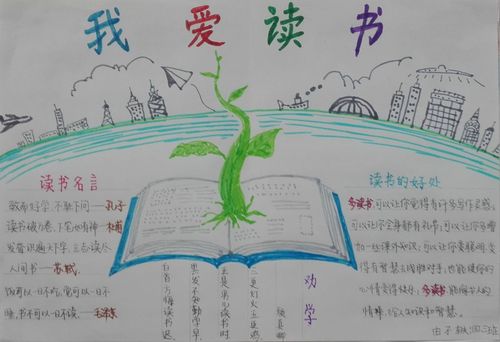 我爱读书
读书名言
敏而好学,不耻下问——孔子
读书破万卷,下笔如有神——杜甫
发奋识遍天下字,立志读尽
人间书——苏轼
饭可以一日不吃,觉可以一日不
睡,书不可以一日不读——毛泽东
劝学
颜真卿
三更灯火五更鸡
正是男儿读书时
黑发不知勤学早
白首方悔读书迟
读书的好处
多读书可以让你觉得有许多写作灵感
可以让你全身都有礼貌;可以让你
增加一些课外知识;可以让你变聪明
得有智慧去战胜对手,也能使你的
心情变得快乐;多读书能